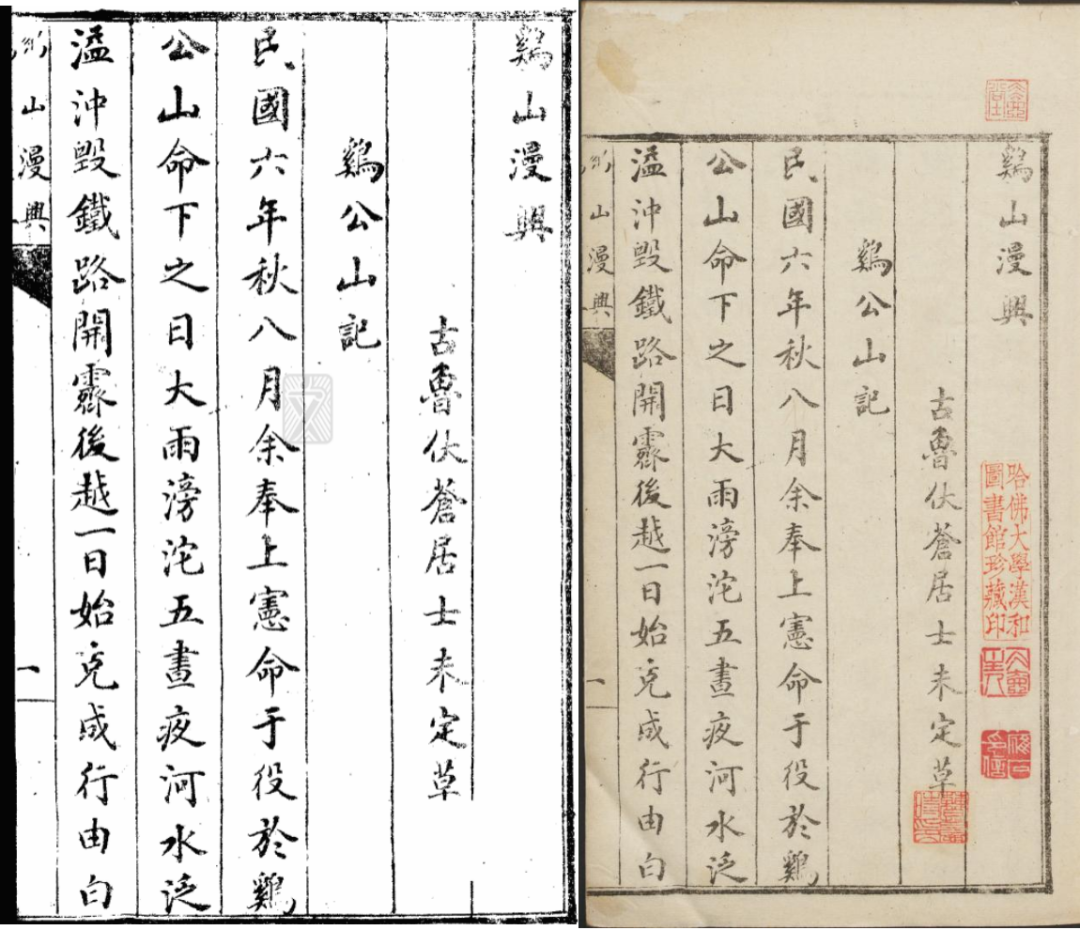 鷄山漫興
古魯伏蒼居士未定草
鷄公山記
民國六年秋八月余奉上憲命于役於鷄
公山命下之日大雨滂沱五晝夜河水泛
溢沖毀鐵路開霽後越一日始克成行由白
山漫興
一
鷄山漫興
古魯伏蒼居士未定草
哈佛大學漢和
圖書館珍藏印
鷄公山記
民國六年秋八月余奉上憲命于役於鷄
公山命下之日大雨滂沱五晝夜河水泛
溢沖毀鐵路開霽後越一日始克成行由白
山漫興
一